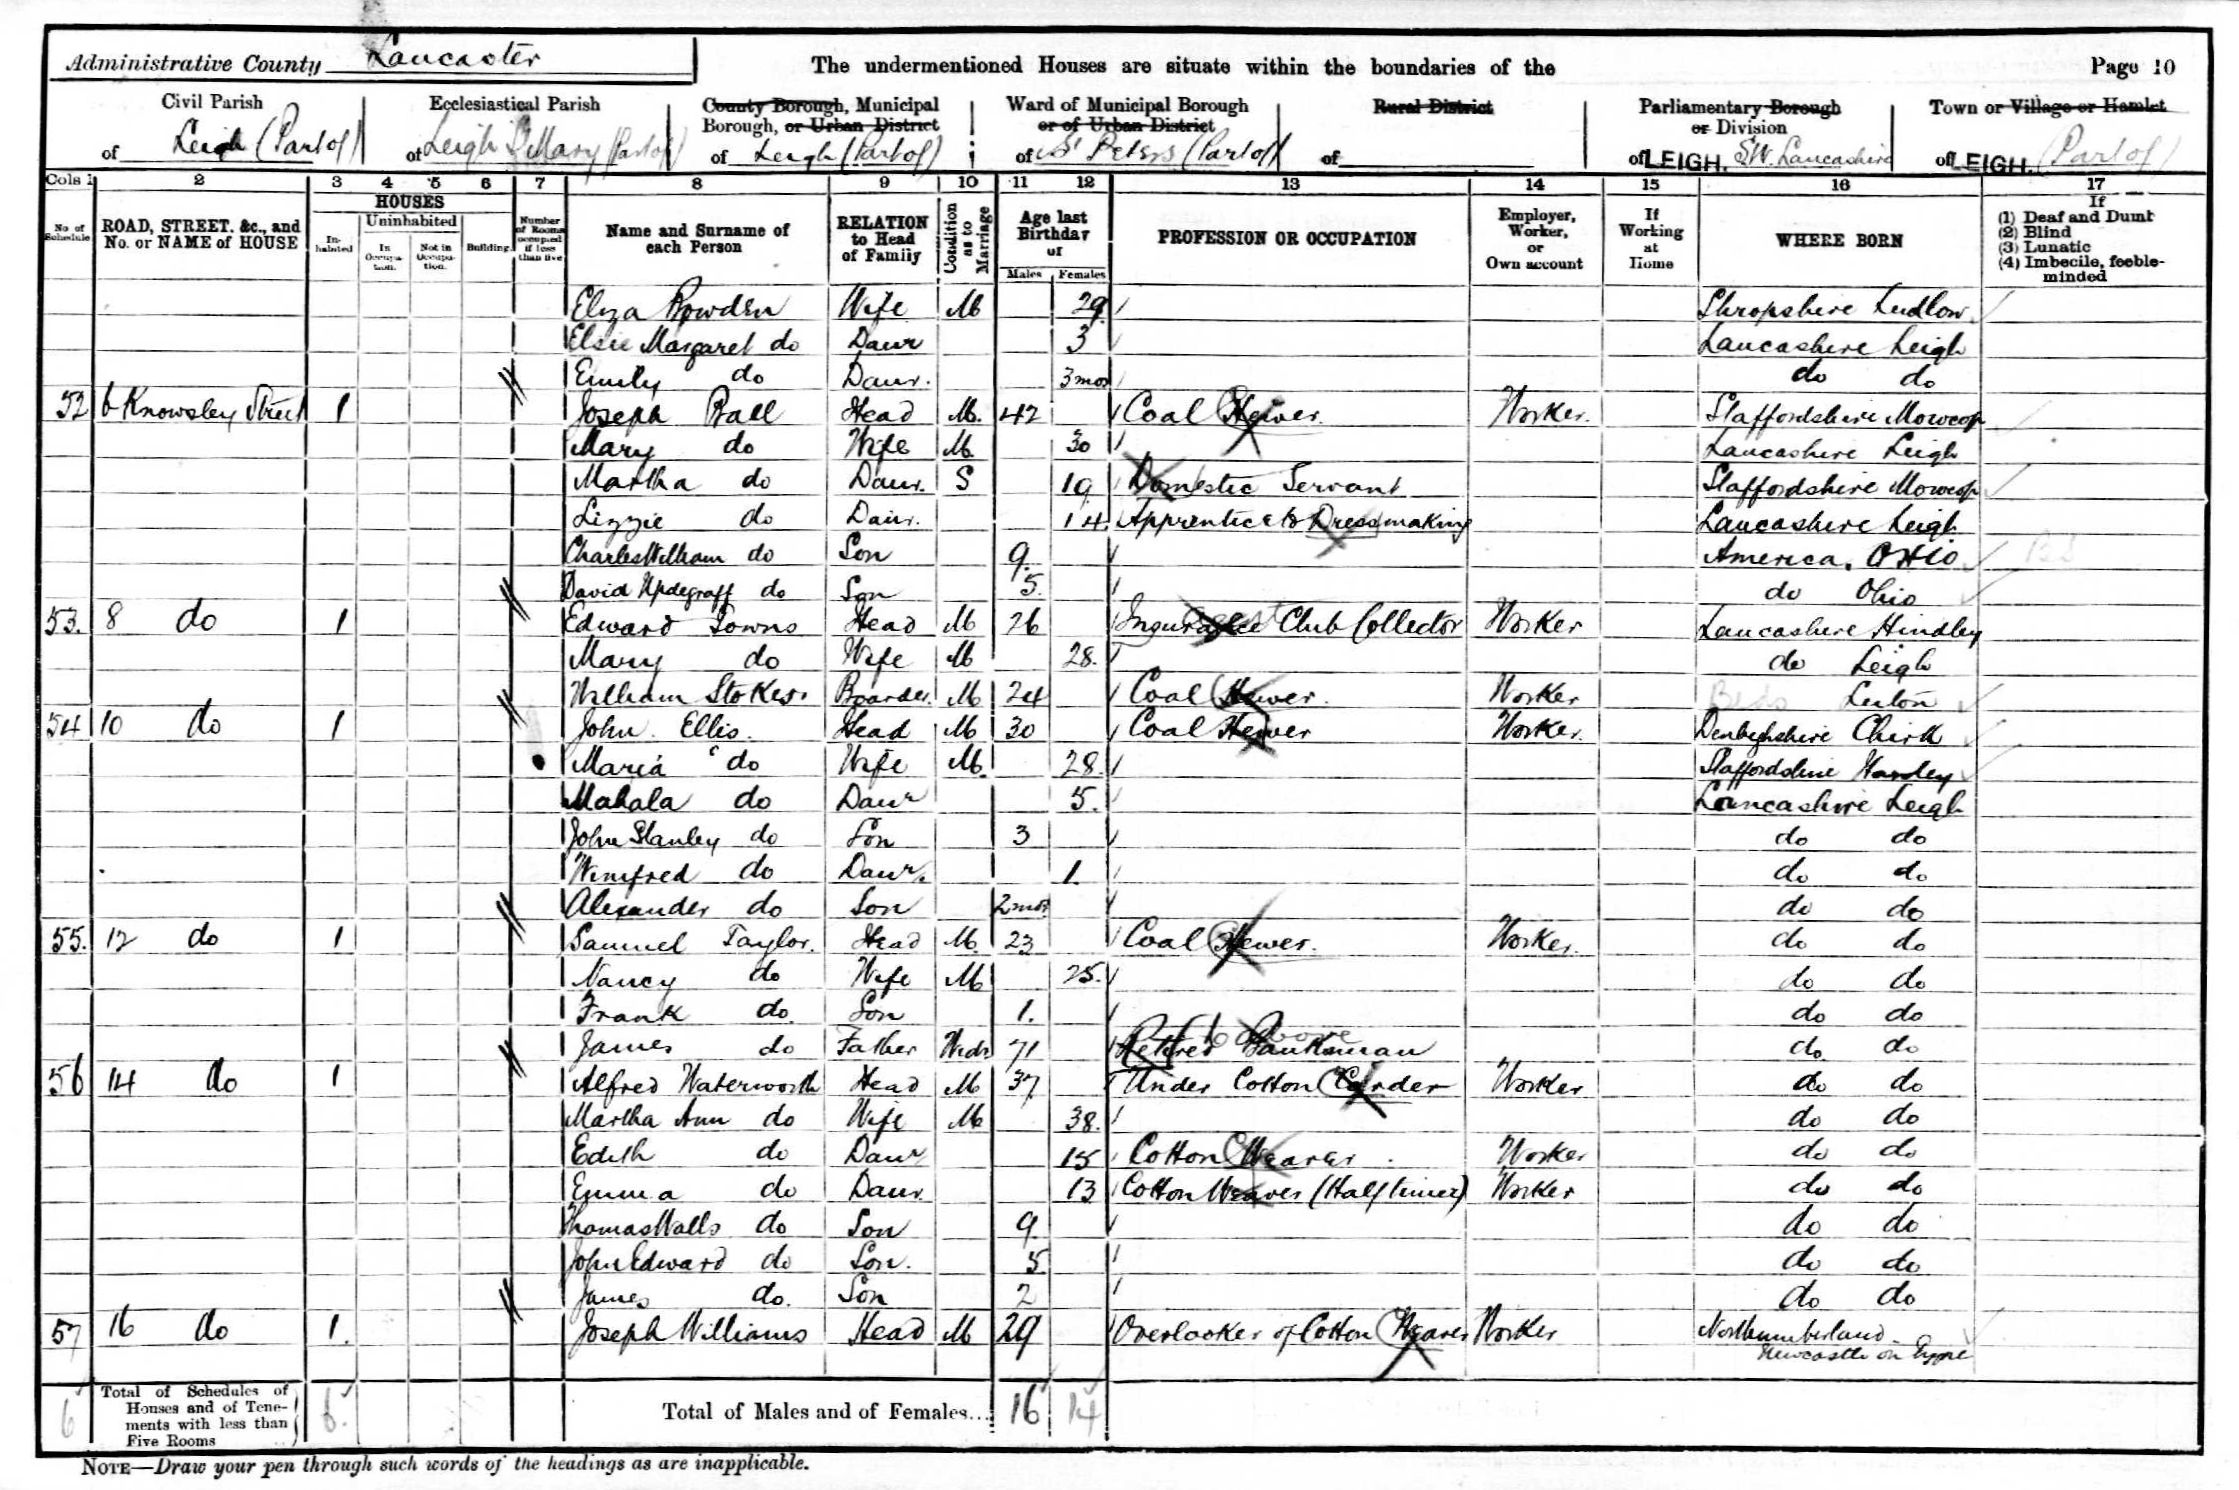 Administrative County Lancaster
The undermentioned Houses are situate within the boundaries of the
Page 10
Civil Parish of Leigh (Part of)
Ecclesiastical Parish of Leigh St Mary (Part of)
County Borough, Municipal Borough, or Urban District of Leigh (Part of)
Ward of Municipal Borough or of Urban District of St Peters (Part of)
Rural District of
Parliamentary Borough or Division of LEIGH. S.W. Lancashire
Town or Village or Hamlet of LEIGH. (Part of)
Cols 1 2 3 4 5 6 7 8 9 10 11 12 13 14 15 16 17
No of Schedule
ROAD, STREET, &c., and No. or NAME of HOUSE
HOUSES
Inhabited
Uninhabited
In Occupation.
Not in Occupation.
Building.
Number of Rooms occupied if less than five
Name and Surname of each Person
RELATION to Head of Family
Condition as to Marriage
Age last Birthday of
Males Females
PROFESSION OR OCCUPATION
Employer, Worker, or Own account
If Working at Home
WHERE BORN
If
(1) Deaf and Dumb
(2) Blind
(3) Lunatic
(4) Imbecile, feeble-minded
Eliza Bowden Wife M 29 Shropshire Ludlow
Elsie Margaret do Daur 3 Lancashire Leigh
Emily do Daur. 3 mos do do
52 6 Knowsley Street 1 Joseph Ball Head M. 42 Coal Hewer. Worker. Staffordshire Mowcop
Mary do Wife M. 30 Lancashire Leigh
Martha do Daur. S 19 Domestic Servant Staffordshire Mowcop
Lizzie do Daur. 14 Apprentice to Dressmaking Lancashire Leigh
Charles William do Son 9. America. Ohio
David Updegraff do Son 5. do Ohio
53. 8 do 1 Edward Towns Head M 26 Insurance Club Collector Worker Lancashire Hindley
Mary do Wife M 28. do Leigh
William Stokes. Boarder. M 24 Coal Hewer. Worker Beds Luton
54 10 do 1 John Ellis. Head M 30 Coal Hewer Worker. Denbighshire Chirk
Maria do Wife M. 28. Staffordshire Hanley
Mahala do Daur 5. Lancashire Leigh
John Stanley do Son 3 do do
Winifred do Daur. 1. do do
Alexander do Son 2 mos do do
55. 12 do 1 Samuel Taylor. Head M. 23 Coal Hewer. Worker. do do
Nancy do Wife M 25. do do
Frank do. Son 1. do do
James do Father Widr 71 Retired Banksman do. do
56 14 do 1 Alfred Waterworth Head M 37 Under Cotton Carder Worker do do
Martha Ann do Wife M 38. do do
Edith do Daur 15 Cotton Weaver. Worker do do
Emma do Daur. 13 Cotton Weaver (Half timer) Worker do do
Thomas Walls do Son 9. do do
John Edward do Son. 5 do do
James do. Son 2 do do
57 16 do 1. Joseph Williams Head M 29 Overlooker of Cotton Weaver Worker Northumberland. Newcastle on Tyne
6 Total of Schedules of Houses and of Tenements with less than Five Rooms 6. Total of Males and of Females... 16 14
NOTE—Draw your pen through such words of the headings as are inapplicable.